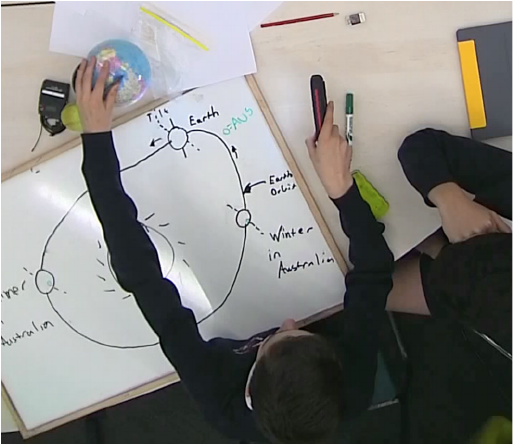 Tilt
Earth
o=AUS
Earth
Orbit
Winter
in
Australia
mer
Australia